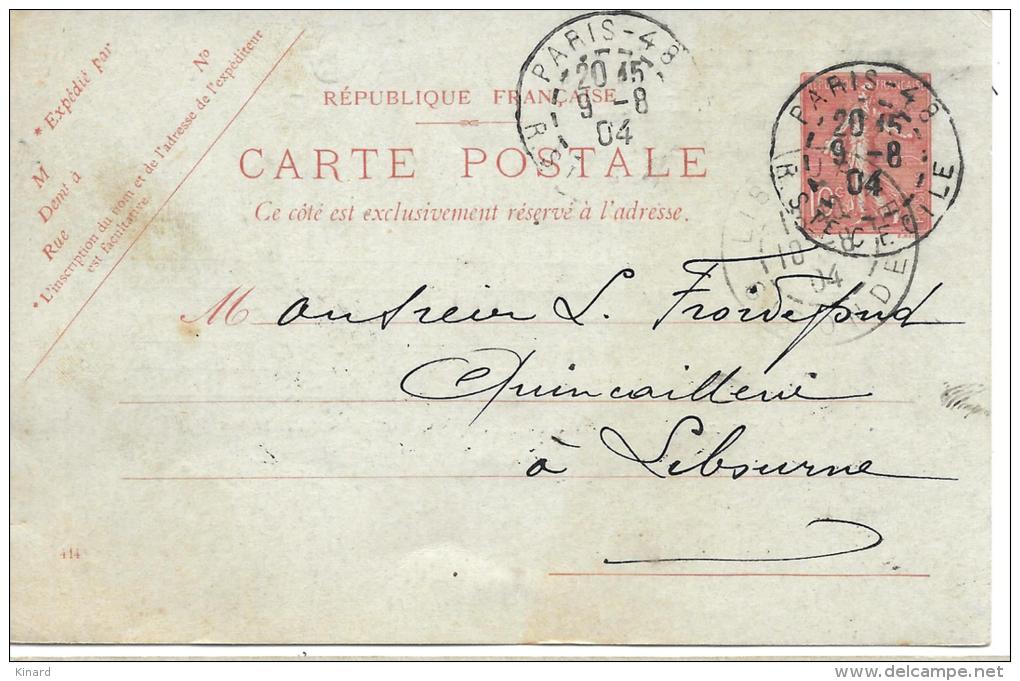 * Expédié par
M
Demt à
Rue No
* L'inscription du nom et de l'adresse de l'expéditeur
est facultative.
PARIS - 48
20 15
9 - 8
04
R. S
RÉPUBLIQUE FRANÇAISE
CARTE POSTALE
Ce côté est exclusivement réservé à l'adresse.
PARIS - 48
20 15
9 - 8
04
R. STE CECILE
LIB
10
04
Monsieur L.
Quincaillerie
à Libourne
414
Kinard
delcampe.net